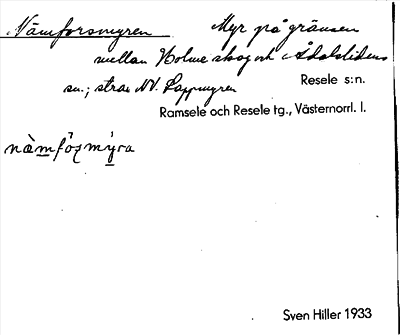 Nämforsmyren Myr på gränsen
mellan Holme skog och Ådalslidens
sn.; strax NV. Lappmyren Resele s:n.
Ramsele och Resele tg., Västernorrl. l.
nämforsmyra
Sven Hiller 1933